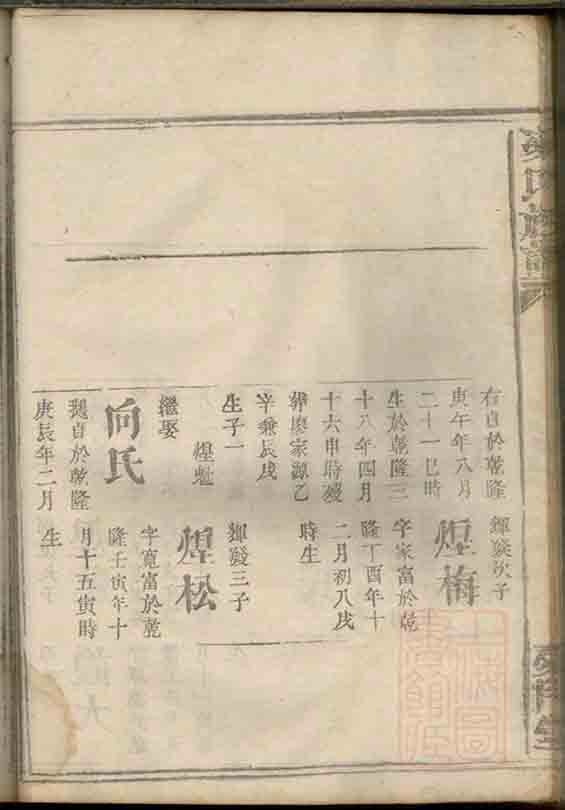 右自於乾隆
庚午年八月
二十一巳時
生於乾隆三
十八年四月
十六申時歿
葬廖家源乙
辛兼辰戌
生子一
煋魁
繼娶
向氏
魏自於乾隆
庚辰年二月
輝燚次子
煋梅
字家富於乾
隆丁酉年十
二月初八戌
時生
輝燚三子
煋松
字寬富於乾
隆壬寅年十
月十五寅時
生